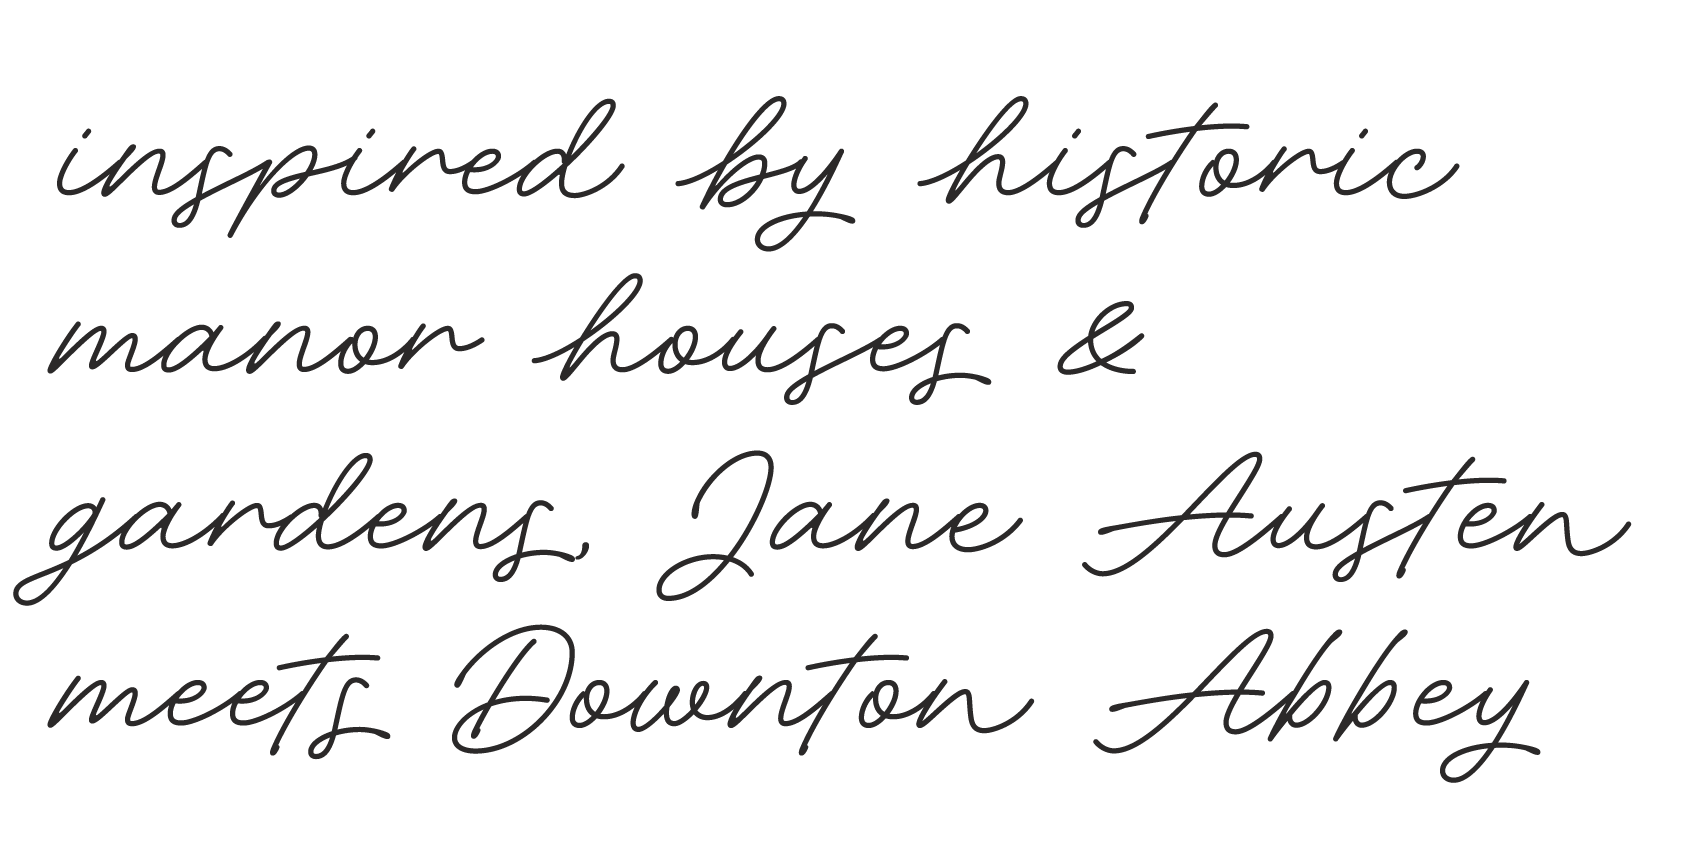 inspired by historic
manor houses &
gardens, Jane Austen
meets Downton Abbey